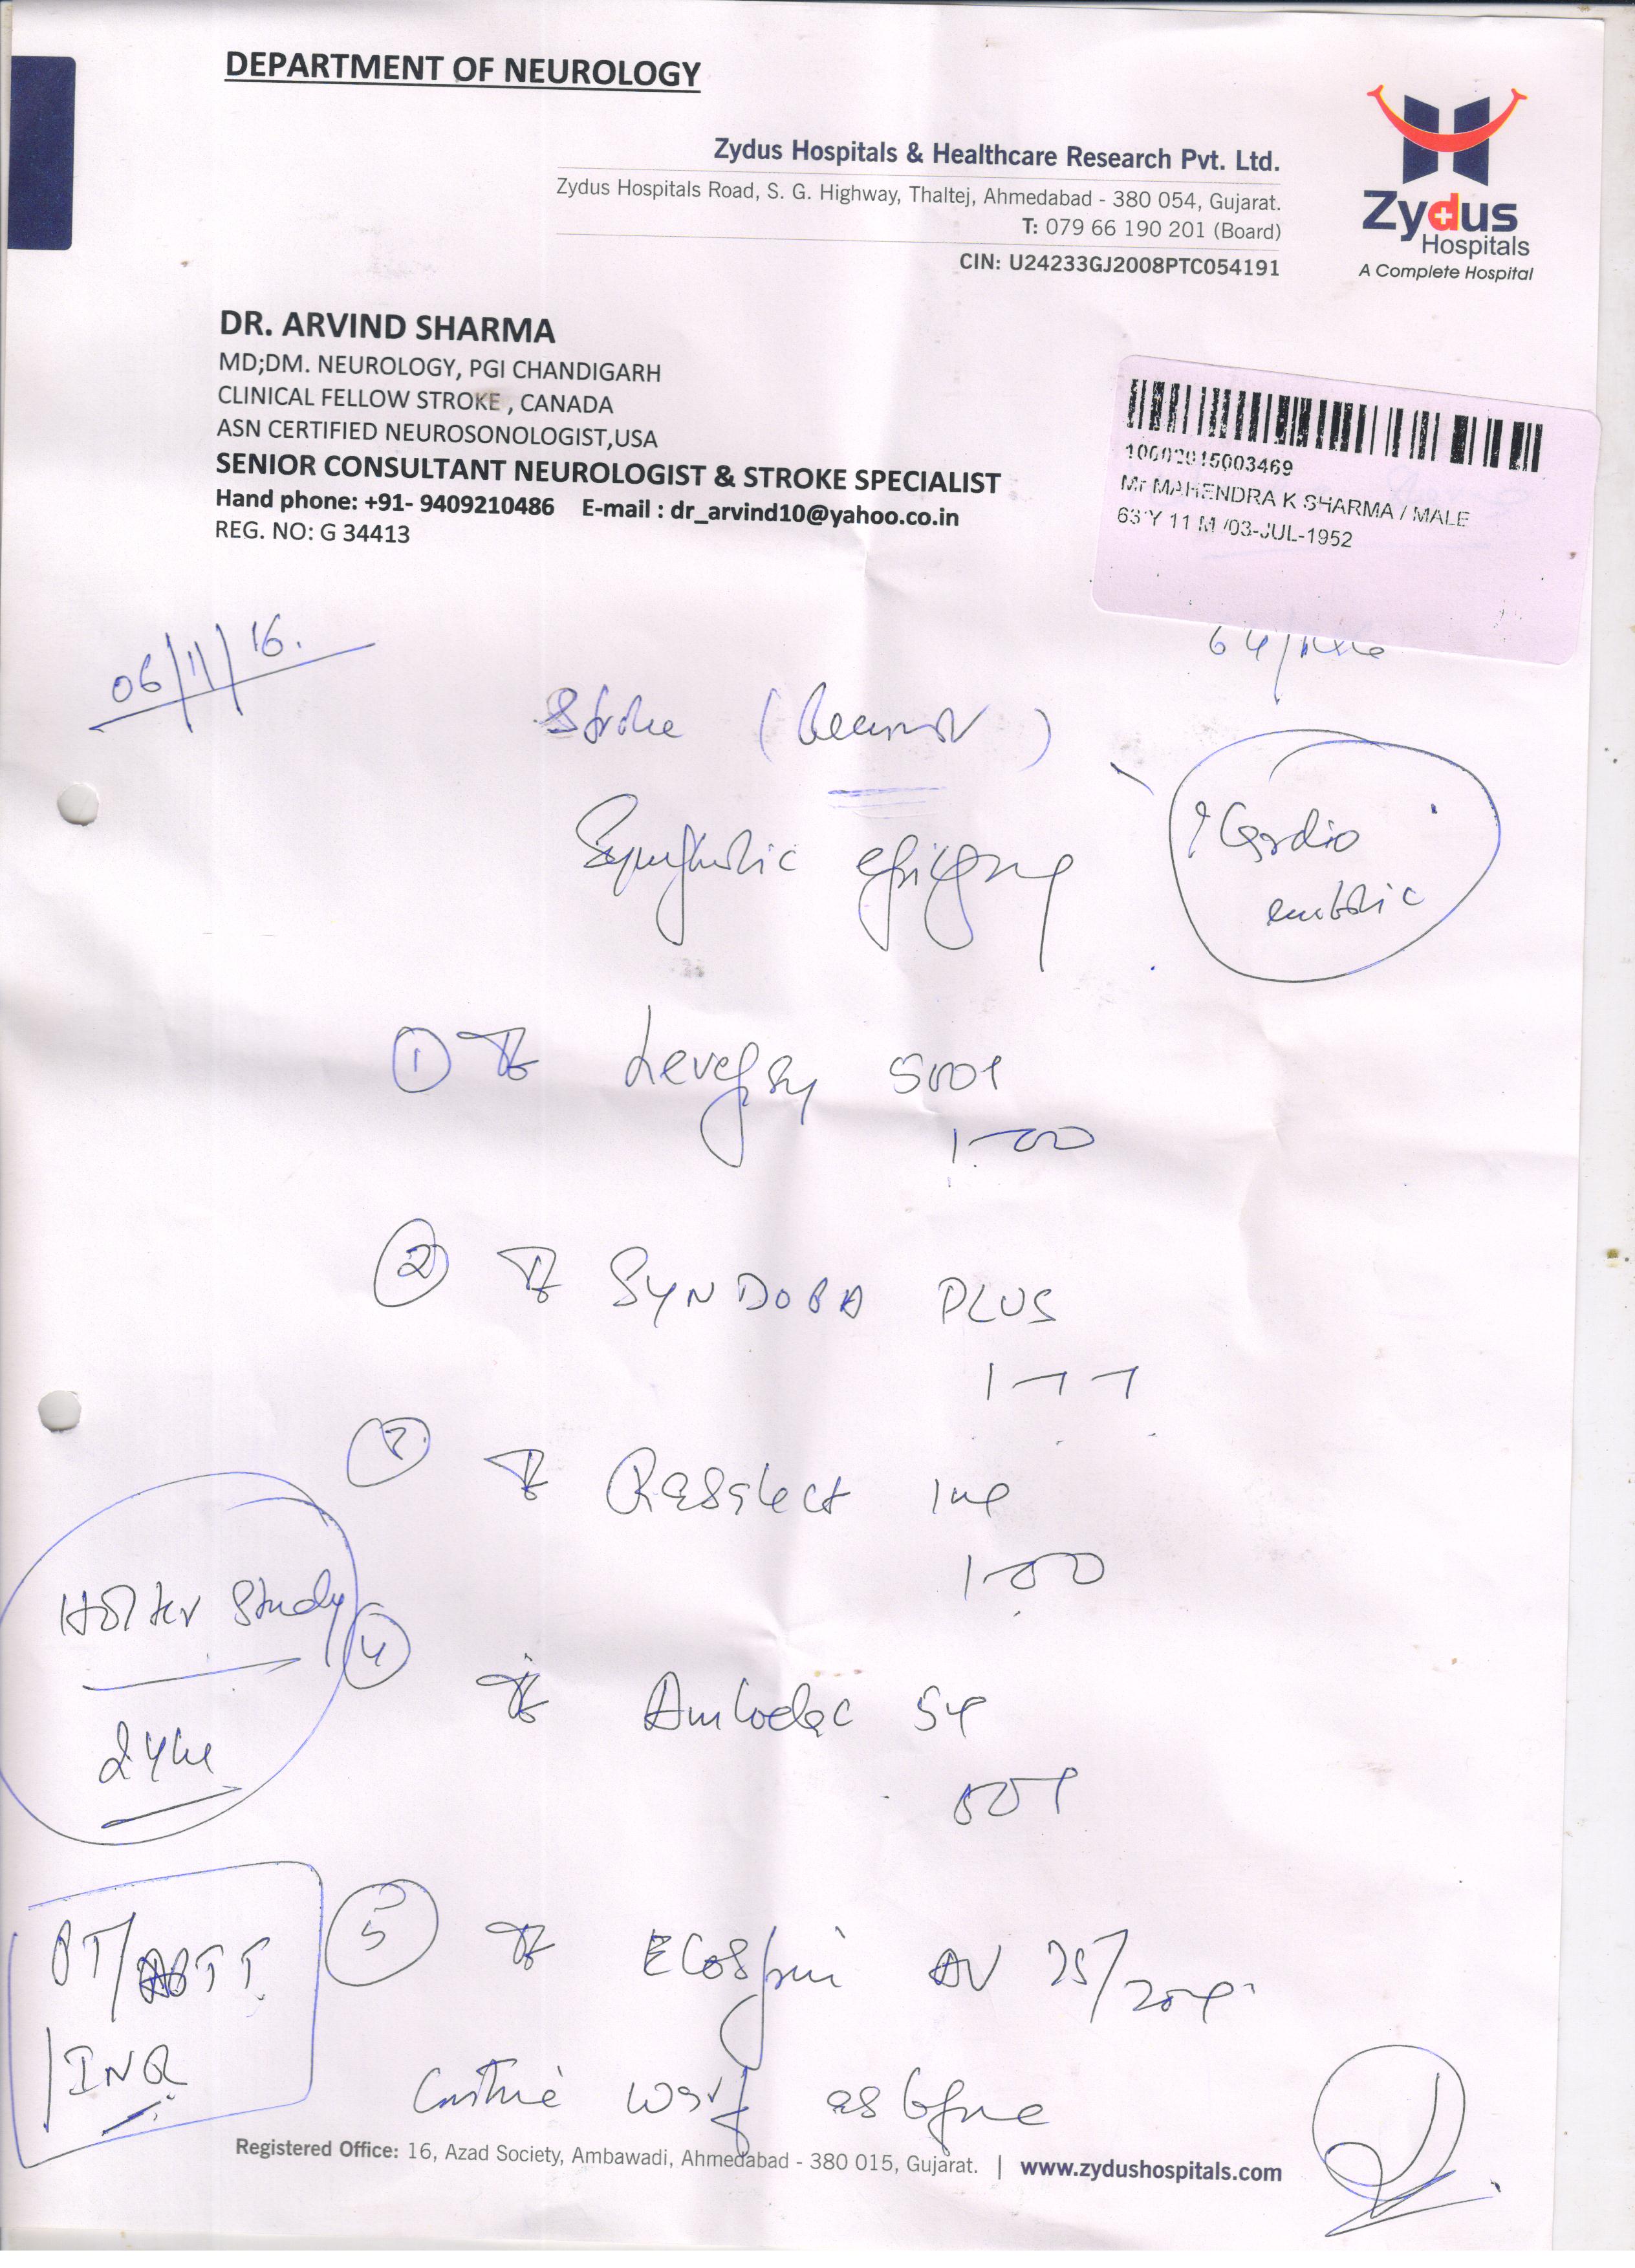 DEPARTMENT OF NEUROLOGY
Zydus Hospitals & Healthcare Research Pvt. Ltd.
Zydus Hospitals Road, S. G. Highway, Thaltej, Ahmedabad - 380 054, Gujarat.
T: 079 66 190 201 (Board)
CIN: U24233GJ2008PTC054191
Zydus
Hospitals
A Complete Hospital
DR. ARVIND SHARMA
MD;DM. NEUROLOGY, PGI CHANDIGARH
CLINICAL FELLOW STROKE , CANADA
ASN CERTIFIED NEUROSONOLOGIST,USA
SENIOR CONSULTANT NEUROLOGIST & STROKE SPECIALIST
Hand phone: +91- 9409210486 E-mail : dr_arvind10@yahoo.co.in
REG. NO: G 34413
Mr MAHENDRA K SHARMA / MALE
63 Y 11 M /03-JUL-1952
06/11/16.
64/Male
Stroke (
? Cardio
embolic
epilepsy
1
500
1-00
2 SYNDOPA PLUS
1-1-1
3 Rasalect 1mg
1-00
Holter Study
24hr
4 Amlodac 5
001
PT/APTT
/INR
5 Ecosprin AV 75/20
Continue Warf as before
Registered Office: 16, Azad Society, Ambawadi, Ahmedabad - 380 015, Gujarat. | www.zydushospitals.com